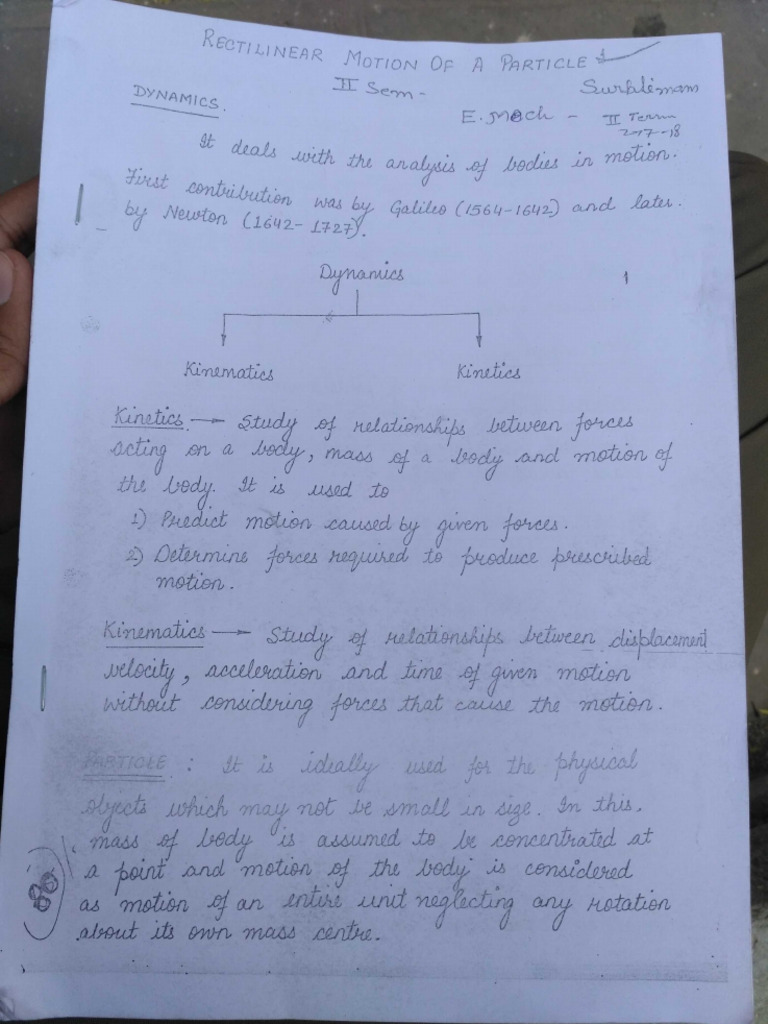 RECTILINEAR MOTION OF A PARTICLE
II Sem -
DYNAMICS.
E. Mech - II Term
2-17-18
It deals with the analysis of bodies in motion.
First contribution was by Galileo (1564-1642) and later.
by Newton (1642-1727).
Dynamics
1
Kinematics Kinetics
Kinetics → Study of relationships between forces
acting on a body, mass of a body and motion of
the body. It is used to
1) Predict motion caused by given forces.
2) Determine forces required to produce prescribed
motion.
Kinematics → Study of relationships between displacement
velocity, acceleration and time of given motion
without considering forces that cause the motion.
PARTICLE : It is ideally used for the physical
objects which may not be small in size. In this,
mass of body is assumed to be concentrated at
a point and motion of the body is considered
as motion of an entire unit neglecting any rotation
about its own mass centre.